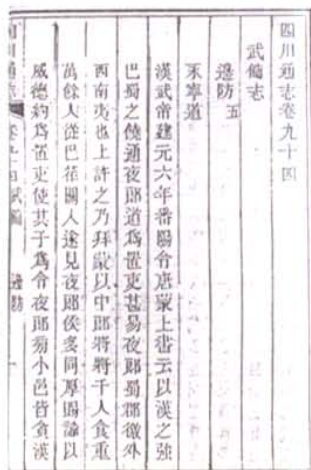 四川通志卷九十四
武備志
邊防五
永寧道
漢武帝建元六年番陽令唐蒙上書云以漢之強
巴蜀之饒通夜郎道爲置吏甚易夜郎蜀郡徼外
西南夷也上許之乃拜蒙以中郎將將千人食重
萬餘人從巴關入遂見夜郎侯多同厚賜諭以
威德約爲置吏使其子爲令夜郎旁小邑皆貪漢
卷九十四武備 邊防 一